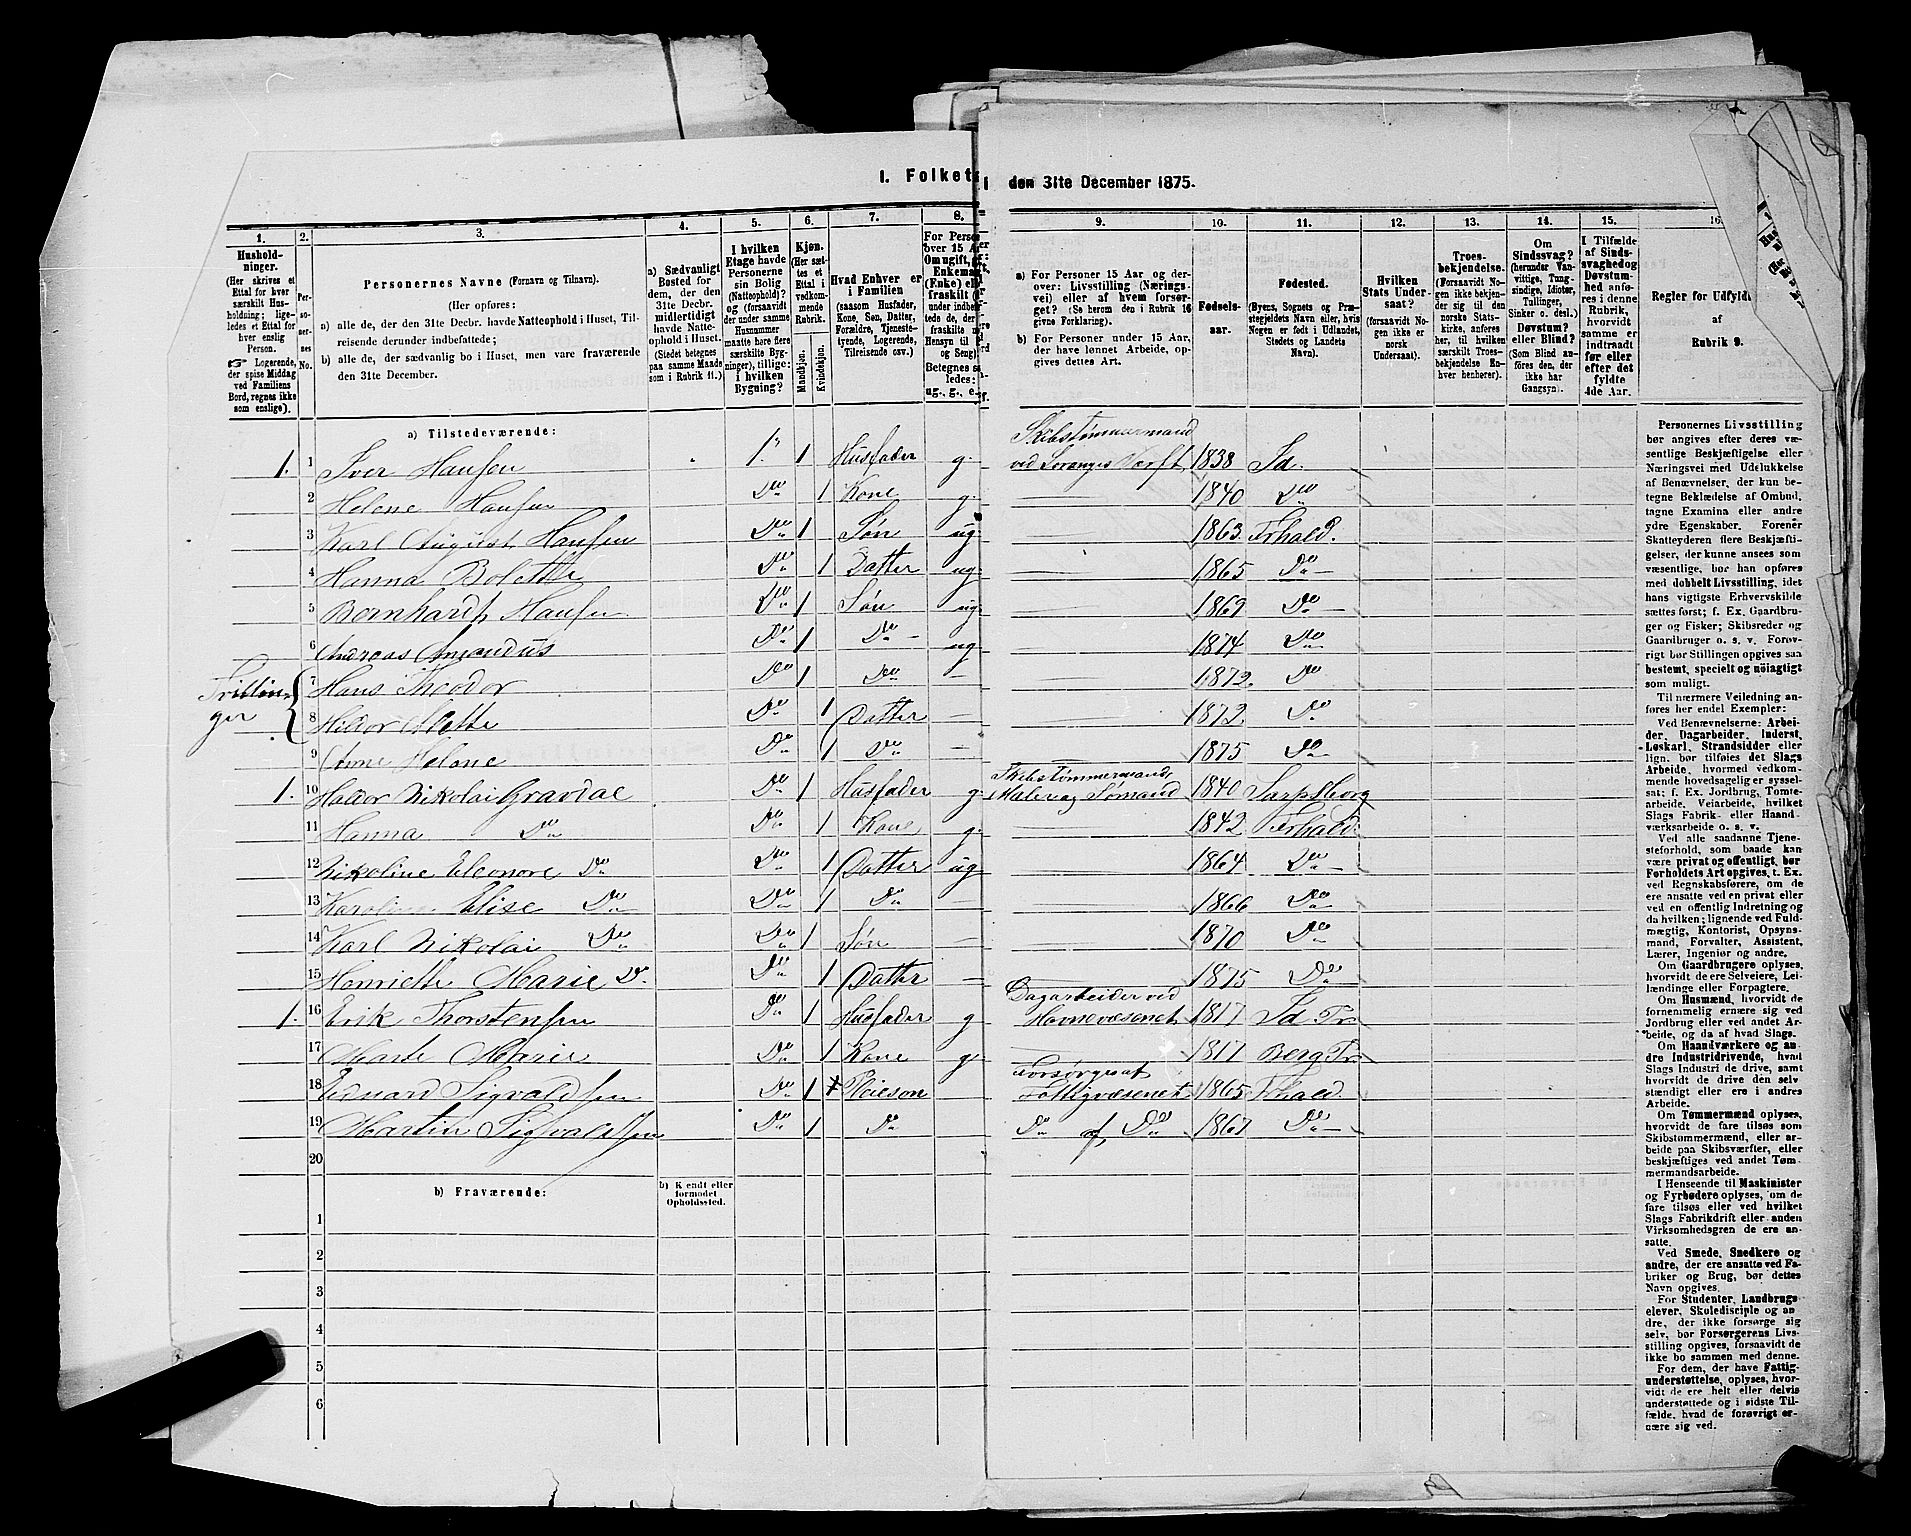 1. Folket
den 31te December 1875.
1.
2.
3.
4.
5.
6.
7.
8.
9.
10.
11.
12.
13.
14.
15.
16
Hushold-
ninger.
(Her skrives et
Ettal for hver
særskilt Hus-
holdning; lige-
ledes et Ettal for
hver enslig
Person.
Logerende,
der spise Middag
ved Familiens
Bord, regnes ikke
som enslige).
No.
Personernes Navne (Fornavn og Tilnavn).
(Her opføres:
a) alle de, der den 31te Decbr. havde Natteophold i Huset, Til-
reisende derunder indbefattede;
b) alle de, der sædvanlig bo i Huset, men vare fraværende
den 31te December.
a) Sædvanligt
Bosted for
dem, der den
31te Decbr.
midlertidigt
havde Natte-
ophold i Huset.
(Stedet betegnes
paa samme Maade
som i Rubrik 11.)
I hvilken
Etage havde
Personerne
sin Bolig
(Natteophold)?
og (forsaavidt
der under samme
Husnummer
maatte høre flere
særskilte Byg-
ninger), tillige:
I hvilken
Bygning?
Kjøn.
(Her sæt-
tes et
Ettal i
vedkom-
mende
Rubrik.
Mandkjøn.
Kvindekjøn.
Hvad Enhver er
i Familien
(saasom Husfader,
Kone, Søn, Datter,
Forældre, Tjeneste-
tyende, Logerende,
Tilreisende osv.)
a) For Personer 15 Aar og der-
over: Livsstilling (Nærings-
vei) eller af hvem forsør-
get? (Se herom den i Rubrik 16
givne Forklaring).
b) For Personer under 15 Aar,
der have lønnet Arbeide, op-
gives dettes Art.
Fødsels-
aar.
Fødested.
(Byens, Sognets og Præ-
stegjeldets Navn eller, hvis
Nogen er født i Udlandet,
Stedets og Landets
Navn).
Hvilken
Stats Under-
saat?
(forsaavidt No-
gen ikke er
norsk
Undersaat).
Troes-
bekjendelse.
(Forsaavidt No-
gen ikke bekjen-
der sig til den
norske Stats-
kirke, anføres
her, til hvilken
særskilt Troes-
bekjendelse En-
hver henhører).
Om
Sindssvag?
(herunder Van-
vittige, Tung-
sindige, Idioter,
Tullinger,
Sinker o. desl.)
Døvstum?
eller Blind?
(Som Blind an-
føres den, der
ikke har
Gangsyn).
I Tilfælde
af Sinds-
svaghed og
Døvstum-
hed anfø-
res i denne
Rubrik,
hvorvidt
samme er
indtraadt
før eller
efter det
fyldte
4de Aar.
Regler for Udfyld
af
Rubrik 9.
a) Tilstedeværende:
1. 1 Iver Hansen 1. 1 Husfader g. Skibstømmermand ved Sorangs Værft 1838 Id.
2 Helene Hansen Do 1 Kone g. 1840 Do
3 Karl August Hansen Do 1 Søn ug. 1863. Frhald.
4 Hanna Bolette Do 1 Datter ug. 1865 Do
5 Bernhardt Hansen Do 1 Søn ug. 1869 Do
6 Andreas Amandus Do 1 Do ug 1874 Do
Trillin-
ger
7 Hans Theodor Do 1 Do 1872. Do
8 Hildor Mette Do 1 Datter 1872. Do
9 Anne Helene Do 1 Do 1875 Do
1. 10 Haldor Nikolai Gravdal Do 1 Husfader g Skibstømmermand, Maler og Sømand 1840 Sarpsborg
11 Hanna Do Do 1 Kone g. 1842 Frhald.
12 Nikoline Eleonore Do Do 1 Datter ug 1864 Do
13 Karoline Elise Do Do 1 Do 1866 Do
14 Karl Nikolai Do Do 1 Søn 1870 Do
15 Henriette Marie D. Do 1 Datter 1875 Do
1. 16 Erik Thorstensen Do 1 Husfader g Dagarbeider ved Havnevæsenet 1817 Id Pr
17 Marte Marie Do 1 Kone g. 1817 Berg Pr
18 Edvard Sigvaldsen Do 1 Pleieson Forsørges af Fattigvæsenet 1865 Frhald.
19 Martin Sigvaldsen Do 1 Do Do af Do 1867 Do
20
b) Fraværende:
b) Kjendt eller
formodet
Opholdssted.
1
2
3
4
5
6
Personernes Livsstilling
bør angives efter deres væ-
sentlige Beskjæftigelse eller
Næringsvei med Udelukkelse
af Benævnelser, der kun be-
tegne Beklædelse af Ombud,
tagne Examina eller andre
ydre Egenskaber. Forener
Skatteyderen flere Beskjæfti-
gelser, der kunne ansees som
væsentlige, bør han opføres
med dobbelt Livsstilling, idet
hans vigtigste Erhvervskilde
sættes først; f. Ex. Gaardbru-
ger og Fisker; Skibsreder og
Gaardbruger o. s. v. Forøv-
rigt bør Stillingen opgives saa
bestemt, specielt og nøiagtigt
som muligt.
Til nærmere Veiledning an-
føres her endel Exempler:
Ved Benævnelserne: Arbei-
der, Dagarbeider, Inderst,
Løskarl, Strandsidder eller
lign. bør tilføies det Slags
Arbeide, hvormed vedkom-
mende hovedsagelig er syssel-
sat; f. Ex. Jordbrug, Tomte-
arbeide, Veiarbeide, hvilket
Slags Fabrik- eller Haand-
værksarbeide o. s. v.
Ved alle saadanne Tjene-
steforhold, som baade kan
være privat og offentligt, bør
Forholdets Art opgives, t. Ex.
ved Regnskabsførere, om de
ere ansatte ved en privat eller
ved en offentlig Indretning og
da hvilken; lignende ved Fuld-
mægtig, Kontorist, Opsyns-
mand, Forvalter, Assistent,
Lærer, Ingeniør og andre.
Om Gaardbrugere oplyses,
hvorvidt de ere Selveiere, Lei-
lændinge eller Forpagtere.
Om Husmænd, hvorvidt de
fornemmelig ernære sig ved
Jordbrug eller ved andet Ar-
beide, og da af hvad Slags.
Om Haandværkere og an-
dre Industridrivende, hvad
Slags Industri de drive, samt
hvorvidt de drive den selv-
stændigt eller ere i andres
Arbeide.
Om Tømmermænd oplyses,
hvorvidt de fare tilsøs som
Skibstømmermænd, eller ar-
beide paa Skibsværfter, eller
beskjæftiges ved andet Tøm-
mermandsarbeide.
I Henseende til Maskinister
og Fyrbødere oplyses, om de
fare tilsøs eller ved hvilket
Slags Fabrikdrift eller anden
Virksomhedsgren de ere an-
satte.
Ved Smede, Snedkere og
andre, der ere ansatte ved Fa-
briker og Brug, bør dettes
Navn opgives.
For Studenter, Landbrugs-
elever, Skoledisciple og an-
dre, der ikke forsørge sig
selv, bør Forsørgerens Livs-
stilling opgives, forsaavidt de
ikke bo sammen med denne.
For dem, der have Fattig-
understøttelse, oplyses, hvor-
vidt de ere helt eller delvis
understøttede og i sidste Til-
fælde, hvad de forøvrigt er-
nære sig ved.